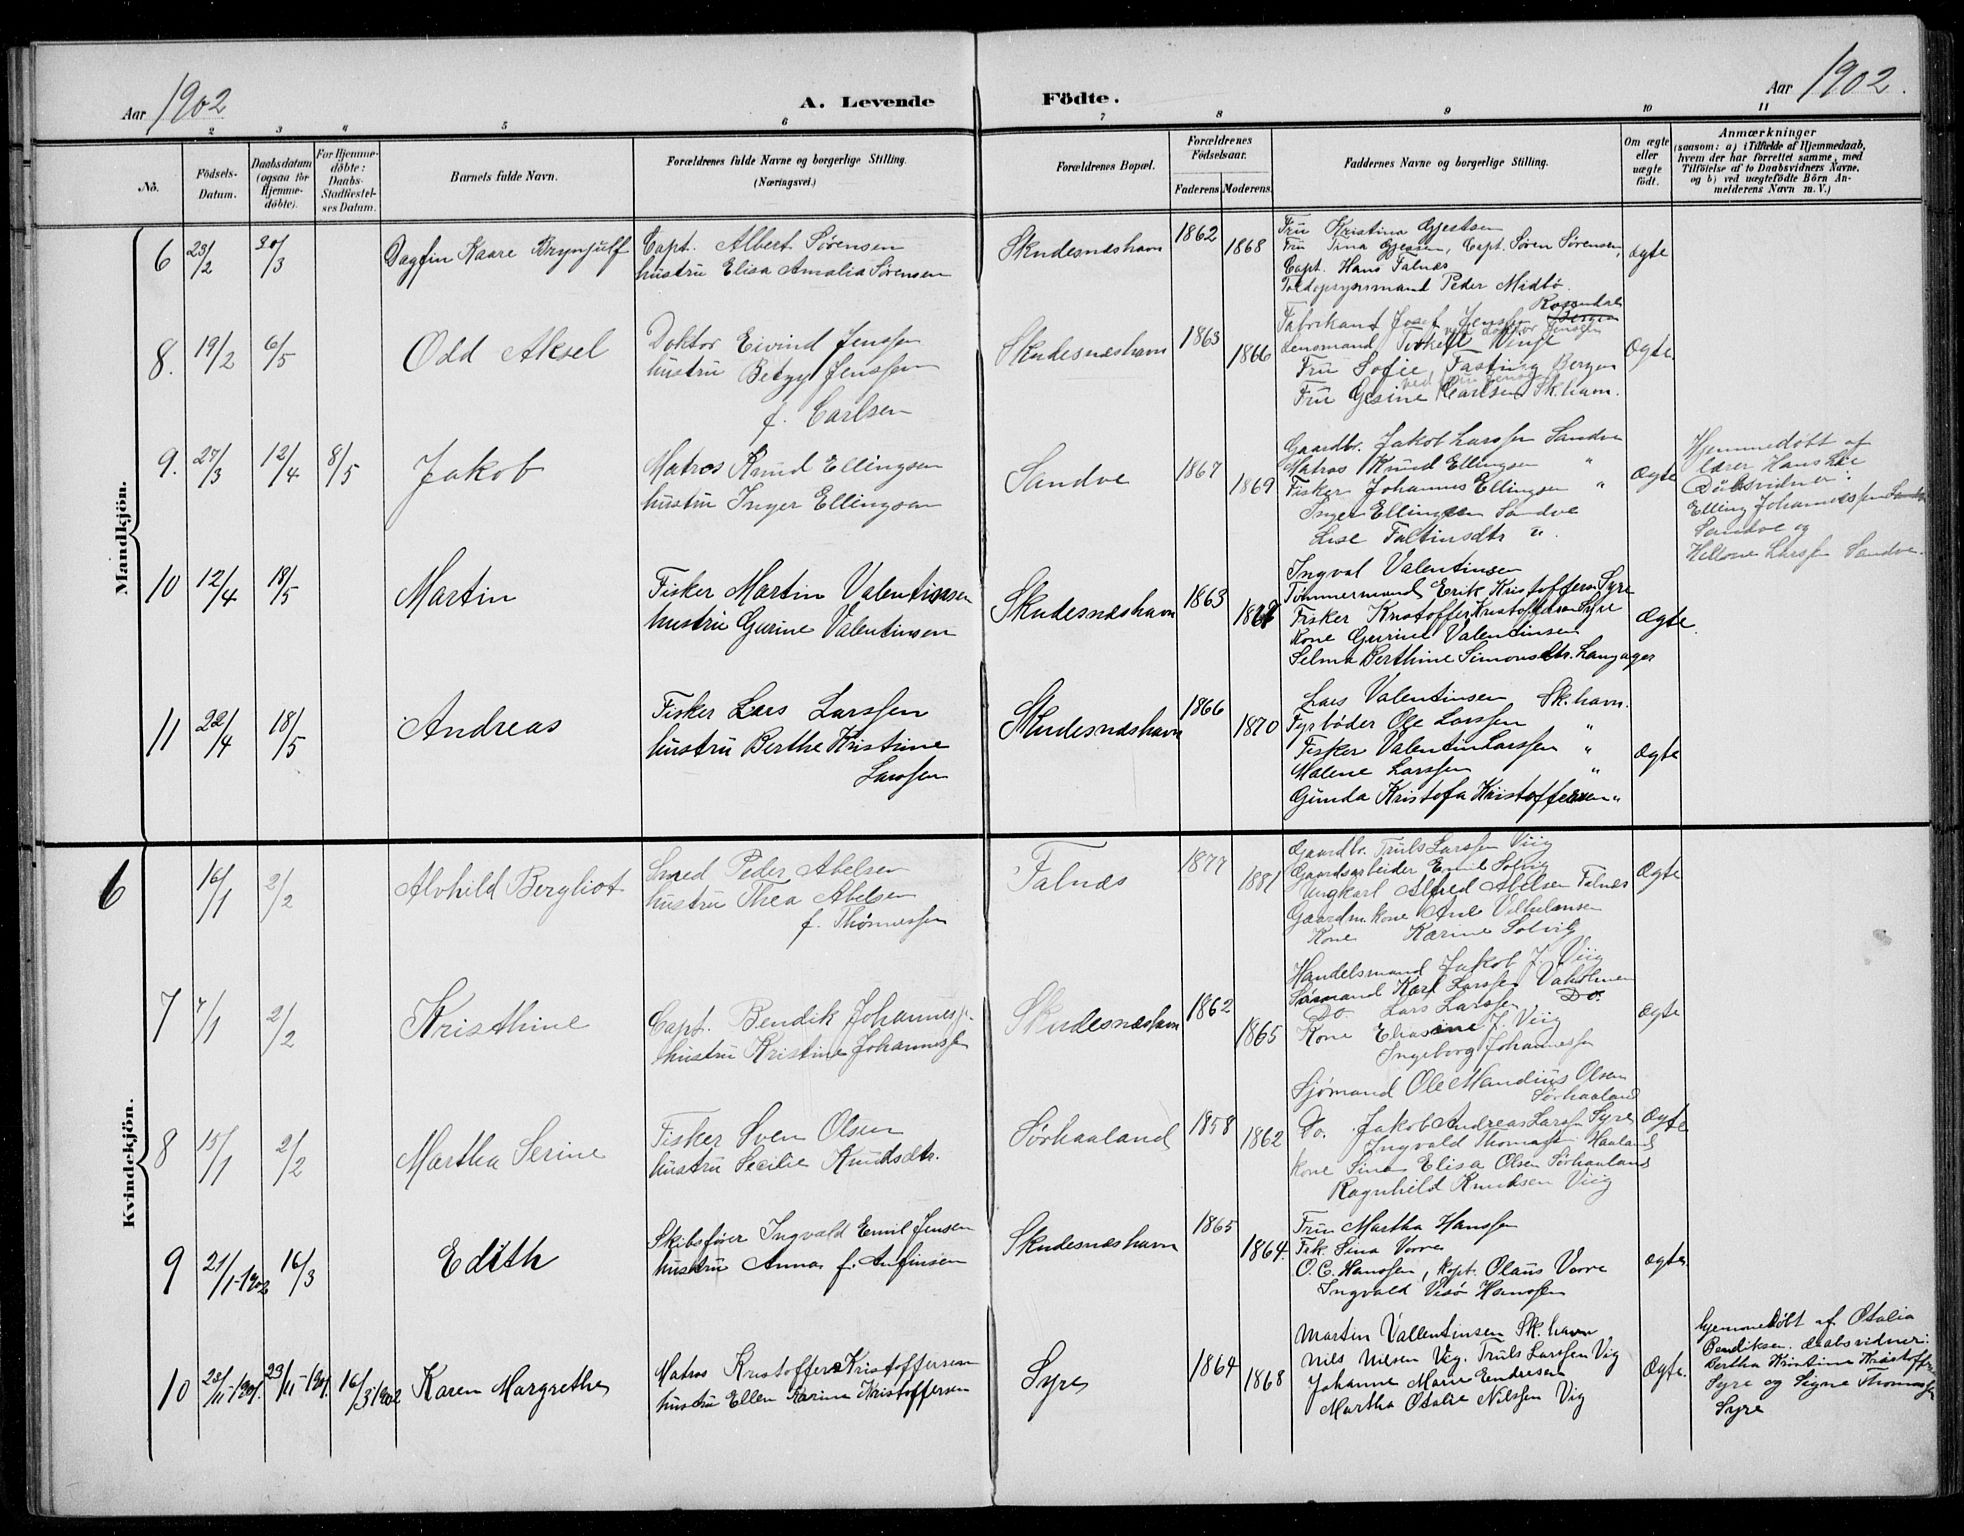 Aar 1902
A. Levende
Födte.
Aar 1902.
2 3 4 5 6 7 8 9 10 11
No.
Födsels-
Datum.
Daabsdatum
(ogsaa for
Hjemme-
döbte).
For Hjemme-
döbte:
Daabs-
Stadfæstel-
ses Datum.
Barnets fulde Navn.
Forældrenes fulde Navne og borgerlige Stilling.
(Næringsvei.)
Forældrenes Bopæl.
Forældrenes
Födselsaar.
Faderens. Moderens.
Faddernes Navne og borgerlige Stilling.
Om ægte
eller
uægte
födt.
Anmærkninger
(saasom: a) i Tilfælde af Hjemmedaab,
hvem der har forrettet samme, med
Tilföielse af to Daabsvidners Navne,
og b) ved uægtefödte Börn An-
melderens Navn m. V.)
Mandkjön.
6 23/2 30/3 Dagfin Kaare Brynjulf
Capt. Albert Sørensen
hustru Elisa Amalia Sørensen
Skudesnæshavn 1862 1868
Fru Kristina Gjestsen
Fru Tina Gjessen, Capt. Søren Sørensen,
Capt. Hans Falnæs
Toldopsynsmand Peder Midbø.
ægte
8. 19/2 6/5 Odd Aksel
Doktor Eivind Jenssen
hustru Betzy Jenssen
f. Carlsen
Skudesnæshavn 1863 1866
Rosendal
Fabrikant Josef Jenssen Bergen
ved Doktor Jensen
Lensmand Torkell Winge
Fru Sofie Fasting Bergen
ved Fru Jenssen
Fru Gesine Carlsen Sk.havn.
Ægte
9. 27/3 12/4 8/5 Jakob
Matros Knud Ellingsen
hustru Inger Ellingsen
Sandve 1867 1869
Gaardbr. Jakob Larssen Sandve
Matros Knud Ellingsen "
Fisker Johannes Ellingsen "
Inger Ellingsen Sandve
Lise Faltinsdtr ".
Ægte
Hjemmedøbt af
lærer Hans Lie
Daabsvidner:
Elling Johannessen Sandve
Sandve og
Hellene Larssen Sandve.
10 12/4 18/5 Martin
Fisker Martin Valentinsen
hustru Gurine Valentinsen
Skudesnæshavn 1863
Ingval Valentinsen
Tømmermand Erik Kristoffersen Syre
Fisker Kristoffer Kristoffersen Syre
Kone Gurine Valentinsen
Selma Berthine Simonsdtr. Langager
Ægte.
11 22/4 18/5 Andreas
Fisker Lars Larssen
hustru Berthe Kristine
Larssen
Skudesnæshavn 1866 1870
Lars Valentinsen Sk.havn.
Fyrbøder Ole Larssen "
Fisker Valentin Larssen "
Malene Larssen "
Gunda Kristofa Kristoffersen "
ægte
Kvindekjön.
6 16/1 2/2 Alvhild Bergliot
Smed Peder Abelsen
hustru Thea Abelsen
f. Thømessen
Falnæs 1877 1881
Gaardbr. Truls Larssen Viig
Gaardsarbeider Emil Solvig
Ungkarl Alfred Abelsen Falnæs
Gaardm. kone Ane Velhelmsen
Kone Karine Solvig
Ægte
7 7/1 2/2 Kristhine
Capt. Bendik Johannessen
hustru Kristine Johannessen
Skudesnæshavn 1862 1865
Handelsmand Jakob J. Viig
Sømand Karl Larssen Vaholmen
Do. Lars Larssen Do.
Kone Eliasine J. Viig
Ingeborg Johannessen
ægte
8 15/1 2/2 Martha Serine
Fisker Sven Olsen
hustru Secilie Knudsdtr.
Sørhaaland 1858 1862
Sjømand Ole Mandius Olsen
Sørhaaland
Do. Jakob Andreas Larssen Syre
Ingvald Thomassen Haaland
Kone Sina Elisa Olsen Sørhaaland
Ragnhild Knudsen Viig
Ægte
9 21/1-1902 16/3 Edith
Skibsfører Ingvald Emil Jensen
hustru Anna f. Anfinsen
Skudesnæshavn 1865 1864.
Fru Martha Hanssen
Frk. Sina Vorre
O. C. Hanssen, kapt. Olaus Vorre
Ingvald Visø Hanssen
ægte
10 28/11-1901. 29/11-1901. 16/3 1902 Karen Margrethe
Matros Kristoffer Kristoffersen
hustru Ellen Karine Kristoffersen
Syre 1864 1868
Martin Vallentinsen Sk.havn
Nils Nilsen Vig. Truls Larssen Vig
Johanne Marie Endresen
Martha Otalie Nilssen Vig
Ægte.
hjemmedøbt af Otalia
Bendiksen. daabsvidner:
Bertha Kristine Kristoffersen
Syre og Signe Thomassen
Syre